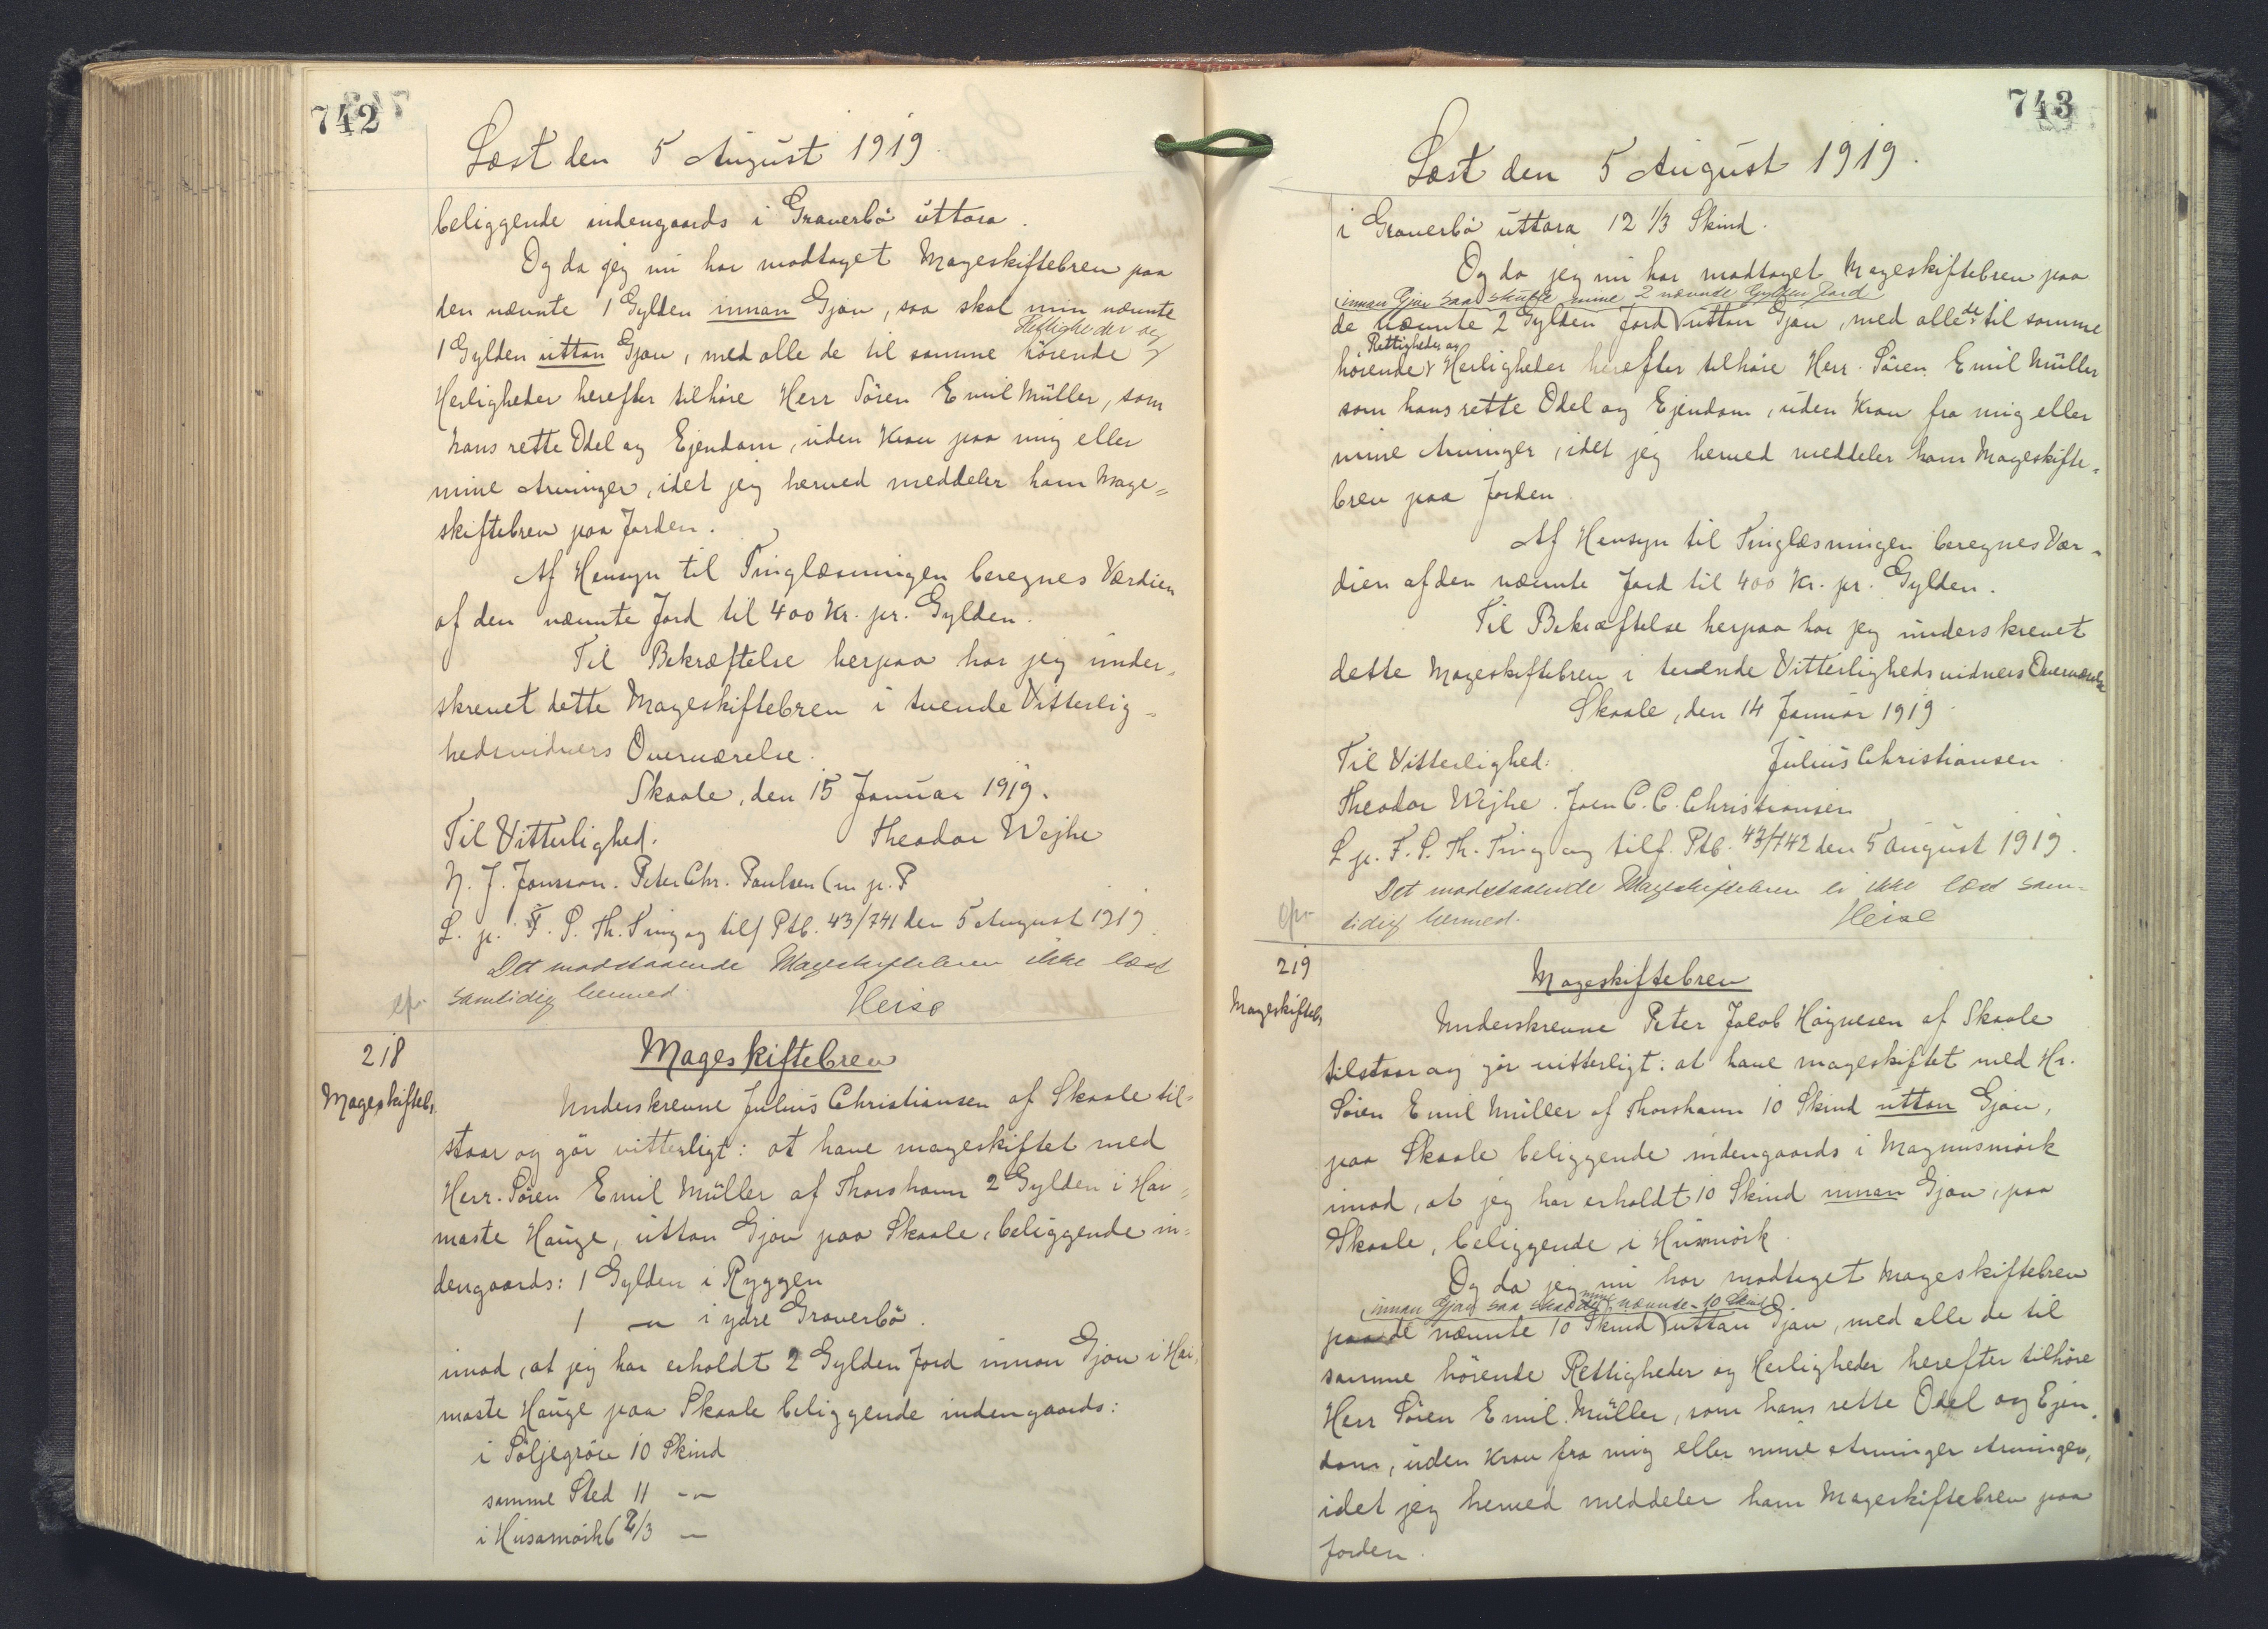 742
Læst den 5 August 1919.
beliggende indengaards i Graverbø uttara.
Og da jeg nu har modtaget Mageskiftebrev paa
den nævnte 1 Gylden innan Gjow, saa skal min nævnte
1 Gylden uttan Gjow, med alle de til samme hørende Rettigheder og
Herligheder herefter tilhøre Herr Sören Emil Müller, som
hans rette Odel og Ejendom, uden Krav paa mig eller
mine Arvinger, idet jeg herved meddeler ham Mage=
skiftebrev paa Jorden.
Af Hensyn til Tinglæsningen beregnes Værdien
af den nævnte Jord til 400 Kr. pr. Gylden.
Til Bekræftelse herpaa har jeg under=
skrevet dette Mageskiftebrev i tvende Vitterlig=
hedsvidners Overværelse.
Skaale, den 15 Januar 1919.
Til Vitterlighed. Theodor Wejhe
N. J. Jonsson. Peter Chr. Paulsen (m. p. P
L. p. F. S. Th. Ting og tilf Ptb. 43/741 den 5 August 1919.
Det modstaaende Mageskiftebrev ikke læst
samtidig hermed. Heise
218
Mageskifteb.
Mageskiftebrev
Underskrevne Julius Christiansen af Skaale til=
staar og gör vitterligt: at have mageskiftet med
Herr. Sören Emil Müller af Thorshavn 2 Gylden i Hei=
maste Hauge, uttan Gjow paa Skaale, beliggende in=
dengaards: 1 Gylden i Ryggen
1 — i ydre Graverbø.
imod, at jeg har erholdt 2 Gylden Jord innan Gjow i Hei=
maste Hauge paa Skaale beliggende indengaards:
i Söljegröv 10 Skind
samme Sted 11 —
i Husamörk 6 2/3 —
743
Læst den 5 August 1919.
i Graverbø uttara 12 1/3 Skind.
Og da jeg nu har modtaget Mageskiftebrev paa
innan Gjow saa skulle mine 2 nævnde Gylden Jord
de nævnte 2 Gylden Jord uttan Gjow, med alle de til samme
Rettigheder og
hörende Herligheder herefter tilhöre Herr. Sören Emil Müller
som hans rette Odel og Ejendom, uden Krav fra mig eller
mine Arvinger, idet jeg herved meddeler ham Mageskifte=
brev paa Jorden
Af Hensyn til Tinglæsningen beregnes Vær=
dien af den nævnte Jord til 400 Kr. pr. Gylden.
Til Bekræftelse herpaa har jeg underskrevet
dette Mageskiftebrev i tvende Vitterlighedsvidners Overværelse
Skaale, den 14 Januar 1919.
Til Vitterlighed: Julius Christiansen.
Theodor Wejhe. Joen C. C. Christiansen
L. p. F. S. Th. Ting og tilf. Ptb. 43/742 den 5 August 1919.
Det modstaaende Mageskiftebrev er ikke læst sam=
tidig hermed. Heise
219
Mageskifteb.
Mageskiftebrev
Underskrevne Peter Jacob Högnesen af Skaale
tilstaar og gör vitterligt: at have mageskiftet med Hr.
Sören Emil Müller af Thorshavn 10 Skind uttan Gjow,
paa Skaale beliggende indengaards i Magnusmörk
imod, at jeg har erholdt 10 Skind innan Gjow, paa
Skaale, beliggende i Husmörk.
Og da jeg nu har modtaget Mageskiftebrev
innan Gjow saa skal mine nævnte 10 Skind
paa de nævnte 10 Skind uttan Gjow, med alle de til
samme hörende Rettigheder og Herligheder herefter tilhöre
Herr Sören Emil Müller, som hans rette Odel og Ejen=
dom, uden Krav fra mig eller mine Arvinger Arvinger,
idet jeg herved meddeler ham Mageskiftebrev paa
Jorden.